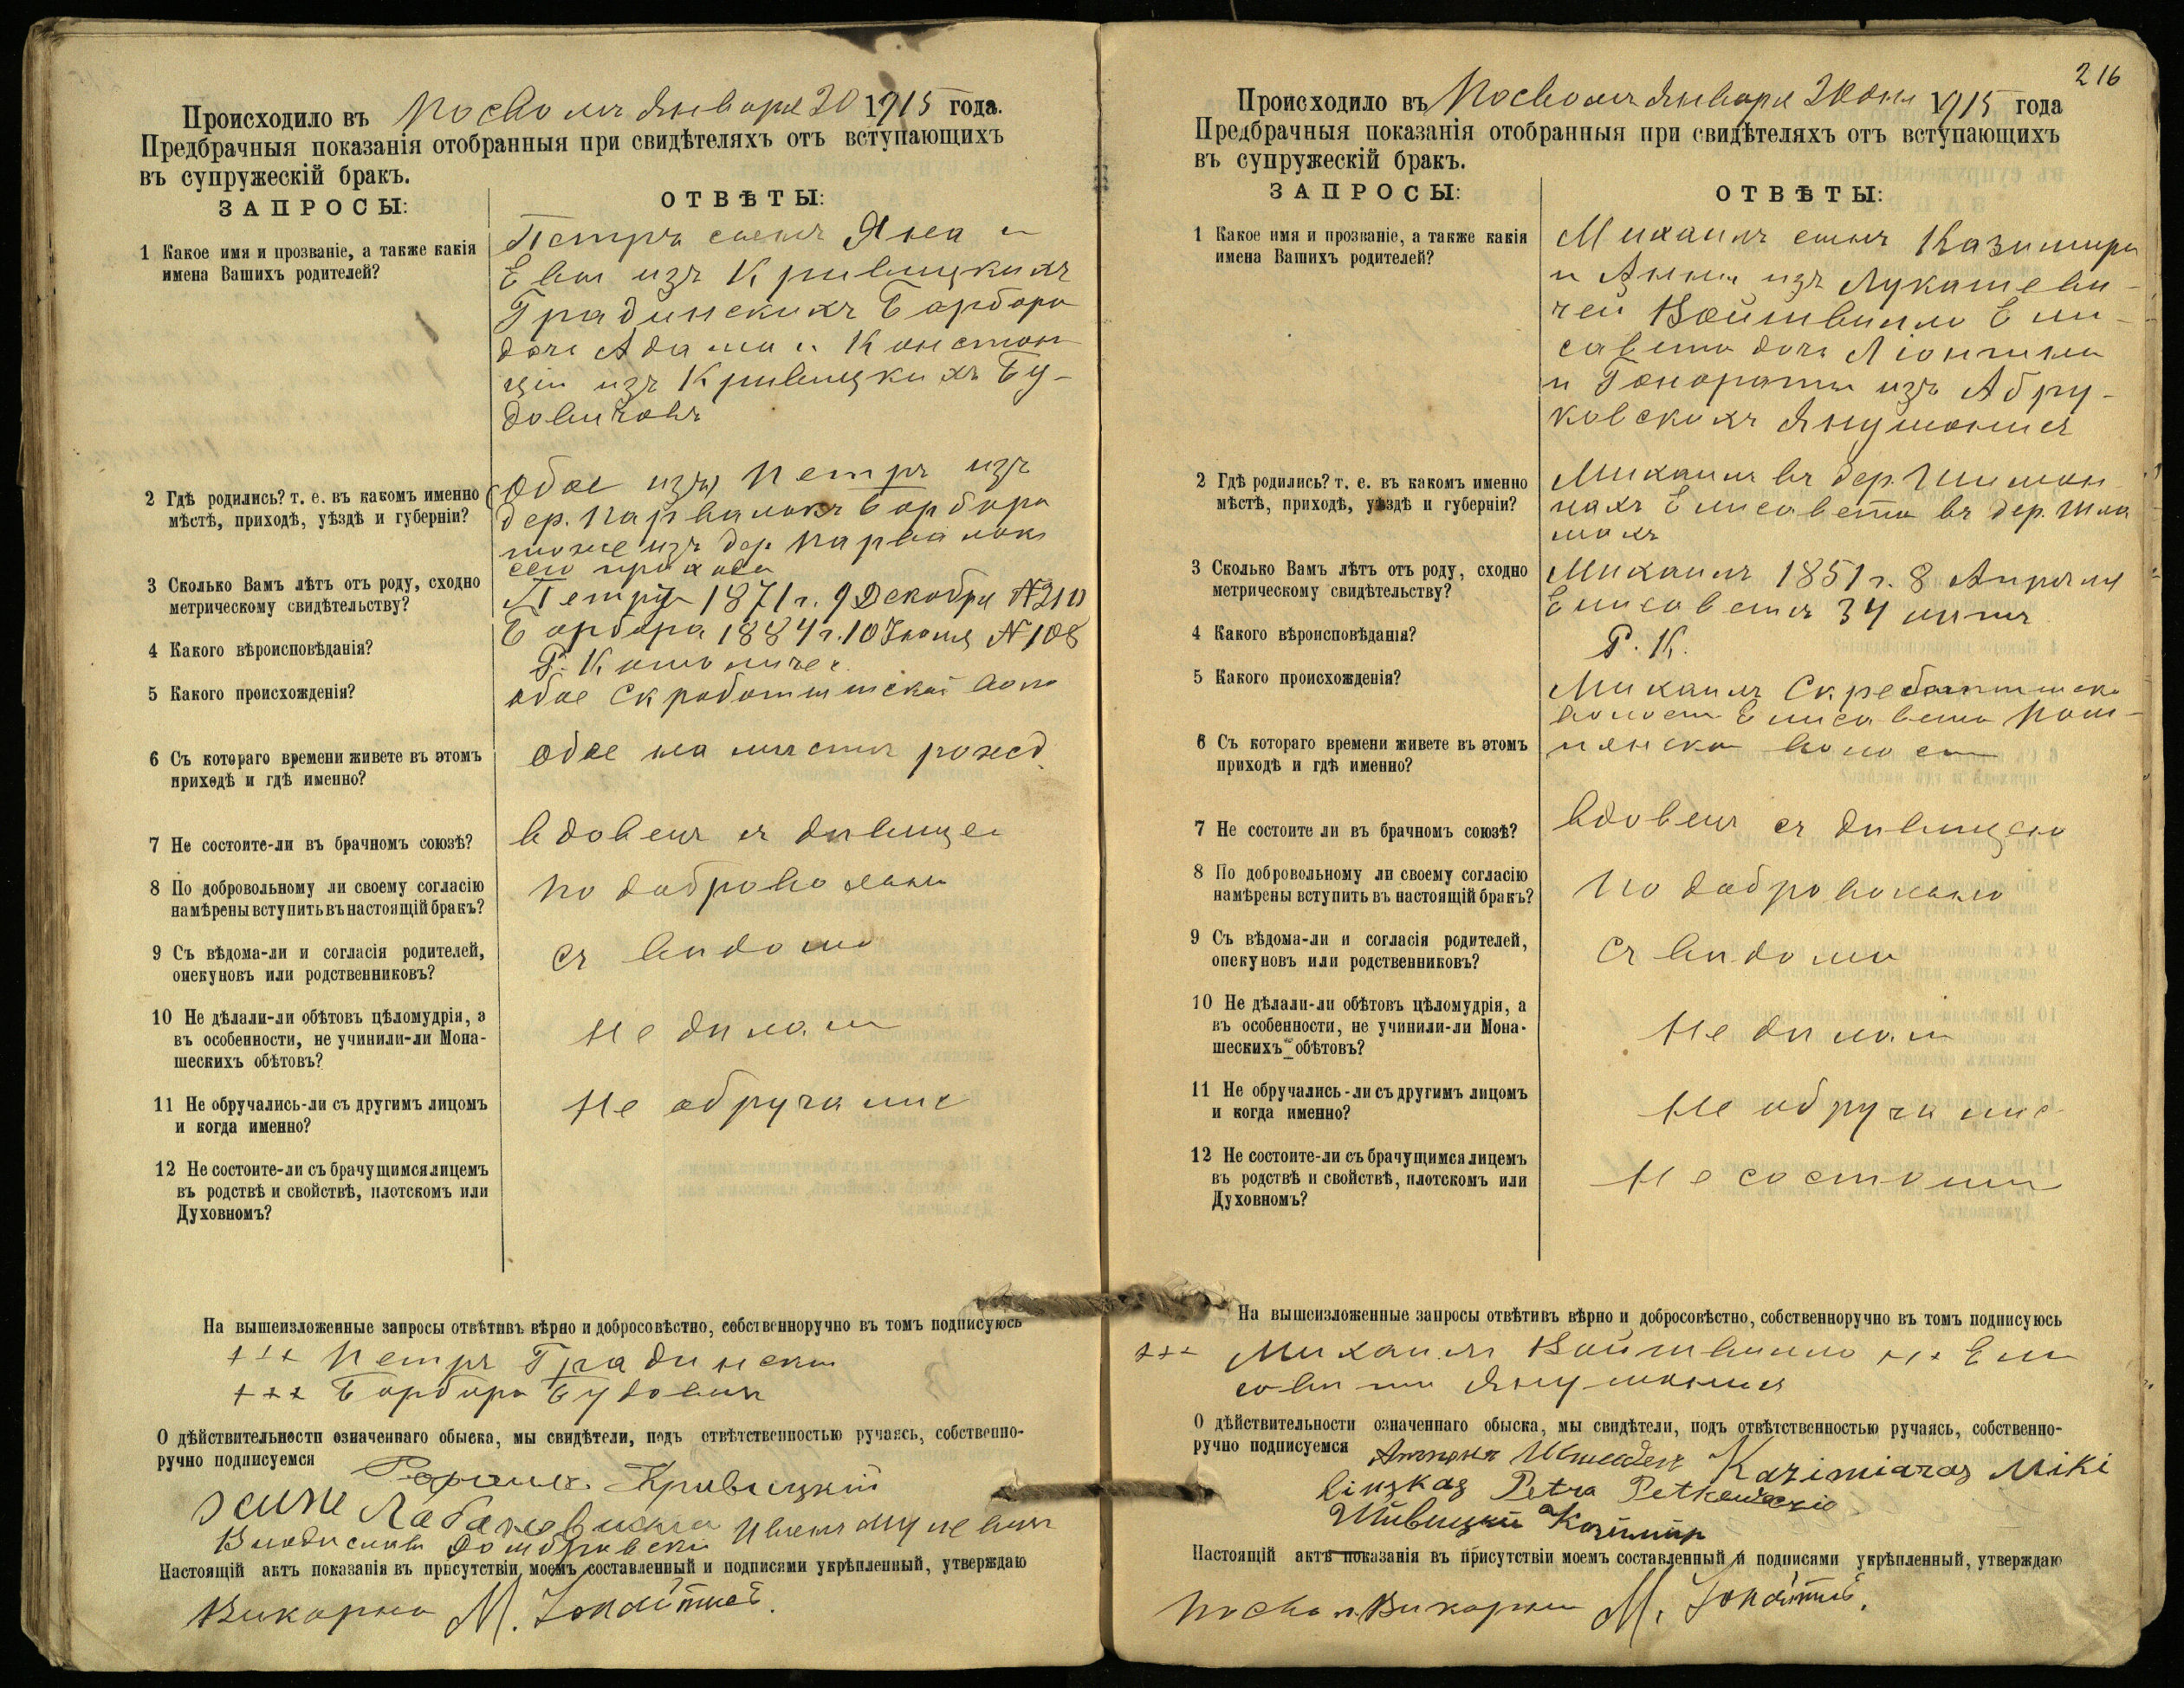 Происходило въ Посволѣ Января 20 1915 года.
Предбрачныя показанія отобранныя при свидѣтеляхъ отъ вступающихъ
въ супружескій бракъ.
ЗАПРОСЫ:
ОТВѢТЫ:
1 Какое имя и прозваніе, а также какія
имена Вашихъ родителей?
Петръ сынъ Яна и
Евы изъ Кривицкихъ
Градинскихъ Барбара
дочь Адама и Констан
ціи изъ Кривицкихъ Бу-
довичовъ
2 Гдѣ родились? т. е. въ какомъ именно
мѣстѣ, приходѣ, уѣздѣ и губерніи?
Обое изъ) Петръ изъ
дер. Барбара
тоже изъ дер.
сего прихода
3 Сколько Вамъ лѣтъ отъ роду, сходно
метрическому свидѣтельству?
Петръ 1871 г. 9 Декабря №
Барбара 1884 г. 10 Іюня № 108
4 Какого вѣроисповѣданія?
Р. Католичес.
5 Какого происхожденія?
обое Скроботишской воло
6 Съ котораго времени живете въ этомъ
приходѣ и гдѣ именно?
Обое на мѣстѣ рожд.
7 Не состоите-ли въ брачномъ союзѣ?
вдовецъ съ дѣвицей
8 По добровольному ли своему согласію
намѣрены вступить въ настоящій бракъ?
По добровольно
9 Съ вѣдома-ли и согласія родителей,
опекуновъ или родственниковъ?
Съ вѣдома
10 Не дѣлали-ли обѣтовъ цѣломудрія, а
въ особенности, не учинили-ли Мона-
шескихъ обѣтовъ?
Не дѣлали
11 Не обручались-ли съ другимъ лицомъ
и когда именно?
Не обручались
12 Не состоите-ли съ брачущимся лицемъ
въ родствѣ и свойствѣ, плотскомъ или
Духовномъ?
На вышеизложенные запросы отвѣтивъ вѣрно и добросовѣстно, собственноручно въ томъ подписуюсь
+++ Петръ Градински
+++ Барбара Будовичъ
О дѣйствительности означеннаго обыска, мы свидѣтели, подъ отвѣтственностью ручаясь, собственно-
ручно подписуемся
Кривицкій
Владиславъ Домбровски
Настоящій актъ показанія въ присутствіи моемъ составленный и подписями укрѣпленный, утверждаю
Викарны М.
216
Происходило въ Посволѣ Января 20 дня 1915 года
Предбрачныя показанія отобранныя при свидѣтеляхъ отъ вступающихъ
въ супружескій бракъ.
ЗАПРОСЫ:
ОТВѢТЫ:
1 Какое имя и прозваніе, а также какія
имена Вашихъ родителей?
Михаилъ сынъ Казимира
и Анны изъ Лукашеви-
чей Войтвилло Ели-
савета дочь
и Гонораты изъ Абру-
ковскихъ Янушонися
2 Гдѣ родились? т. е. въ какомъ именно
мѣстѣ, приходѣ, уѣздѣ и губерніи?
Михаилъ въ дер. Шимон
цахъ Елисавета въ дер.
3 Сколько Вамъ лѣтъ отъ роду, сходно
метрическому свидѣтельству?
Михаилъ 1851 г. 8 Апрѣля
Елисавета 34 лѣтъ
4 Какого вѣроисповѣданія?
Р. К.
5 Какого происхожденія?
Михаилъ
волости Елисавета
волости
6 Съ котораго времени живете въ этомъ
приходѣ и гдѣ именно?
7 Не состоите ли въ брачномъ союзѣ?
вдовецъ съ дѣвицею
8 По добровольному ли своему согласію
намѣрены вступить въ настоящій бракъ?
По добровольно
9 Съ вѣдома-ли и согласія родителей,
опекуновъ или родственниковъ?
Съ вѣдома
10 Не дѣлали-ли обѣтовъ цѣломудрія, а
въ особенности, не учинили-ли Мона-
шескихъ обѣтовъ?
Не дѣлали
11 Не обручались-ли съ другимъ лицомъ
и когда именно?
Не обручались
12 Не состоите-ли съ брачущимся лицемъ
въ родствѣ и свойствѣ, плотскомъ или
Духовномъ?
Не состоимъ
На вышеизложенные запросы отвѣтивъ вѣрно и добросовѣстно, собственноручно въ томъ подписуюсь
+++ Михаилъ Войтвилло +++ Ели
савета Янушонися
О дѣйствительности означеннаго обыска, мы свидѣтели, подъ отвѣтственностью ручаясь, собственно-
ручно подписуемся Антонъ Kazimiaras Miki
Petra
Казимир
Настоящій актъ показанія въ присутствіи моемъ составленный и подписями укрѣпленный, утверждаю
Посвол. Викарны М.